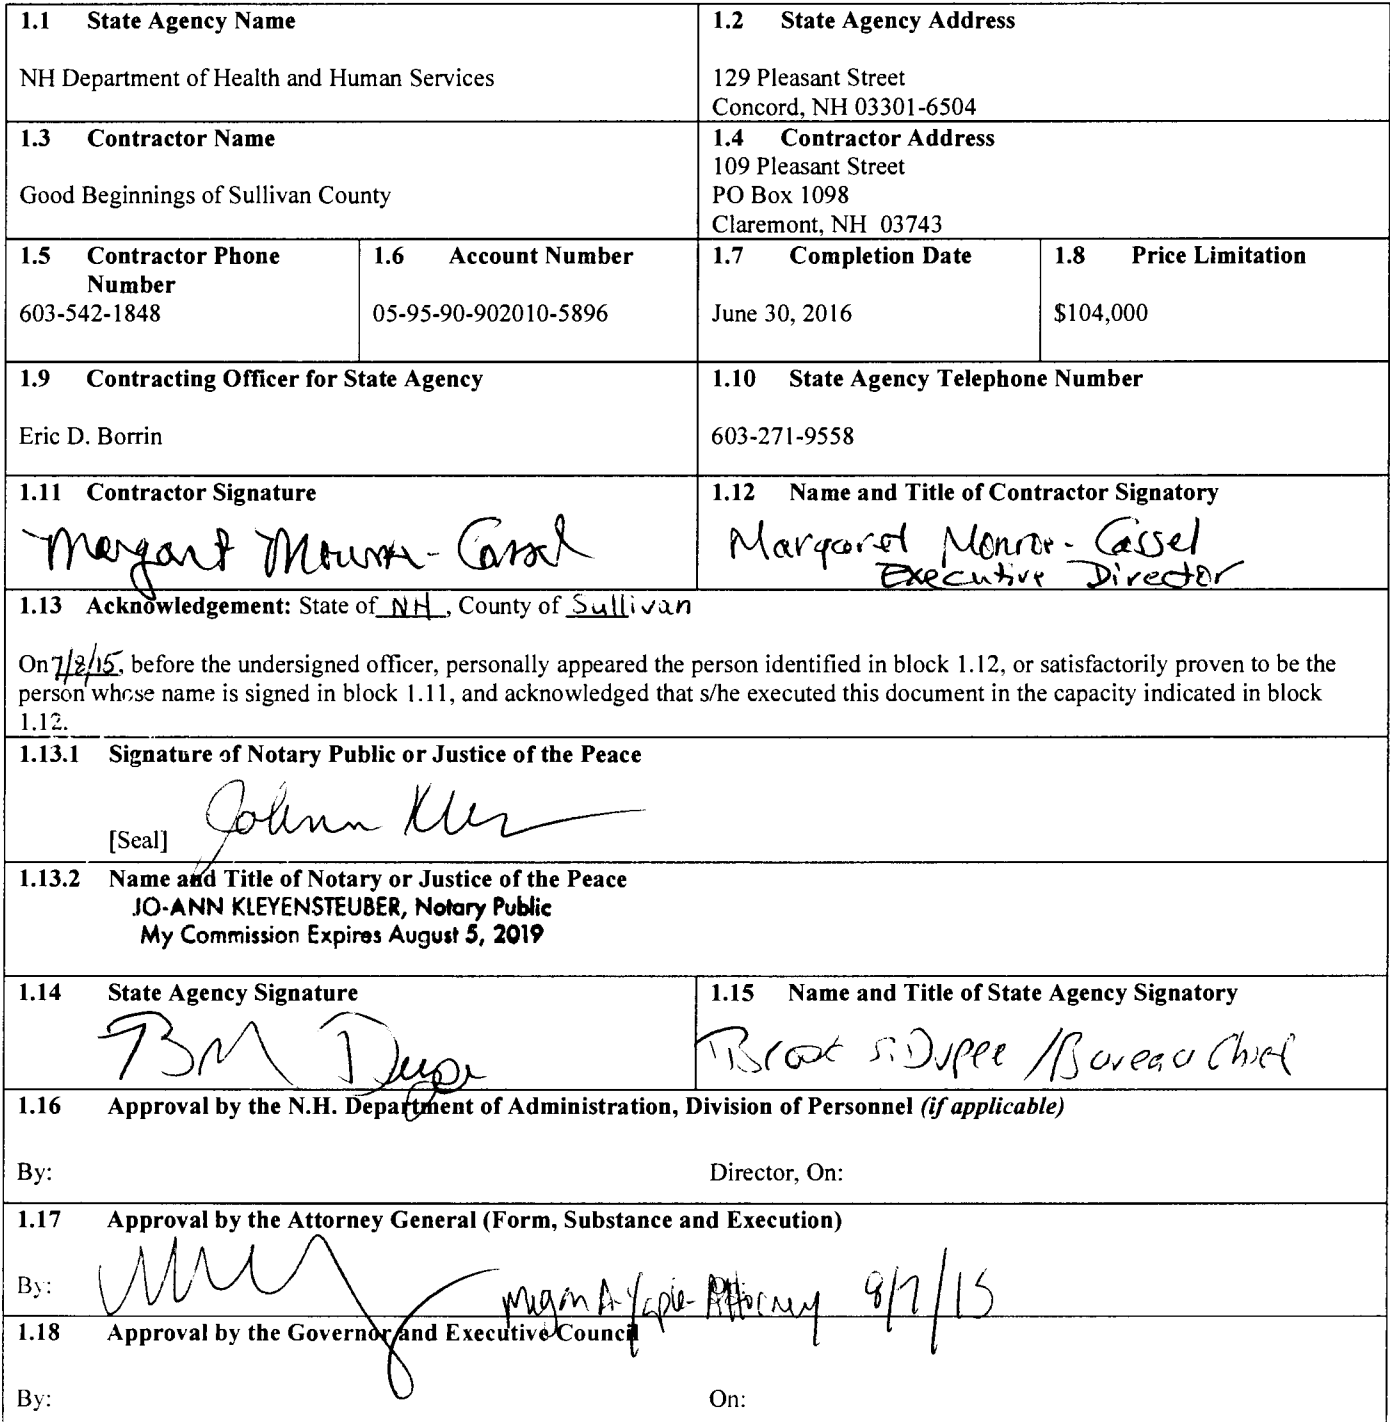 1.1 State Agency Name
NH Department of Health and Human Services
1.2 State Agency Address
129 Pleasant Street
Concord, NH 03301-6504
1.3 Contractor Name
Good Beginnings of Sullivan County
1.4 Contractor Address
109 Pleasant Street
PO Box 1098
Claremont, NH 03743
1.5 Contractor Phone
Number
603-542-1848
1.6 Account Number
05-95-90-902010-5896
1.7 Completion Date
June 30, 2016
1.8 Price Limitation
$104,000
1.9 Contracting Officer for State Agency
Eric D. Borrin
1.10 State Agency Telephone Number
603-271-9558
1.11 Contractor Signature
Margaret Monroe-Cassel
1.12 Name and Title of Contractor Signatory
Margaret Monroe-Cassel
Executive Director
1.13 Acknowledgement: State of NH, County of Sullivan
On 7/8/15, before the undersigned officer, personally appeared the person identified in block 1.12, or satisfactorily proven to be the
person whose name is signed in block 1.11, and acknowledged that s/he executed this document in the capacity indicated in block
1.12.
1.13.1 Signature of Notary Public or Justice of the Peace
[Seal]
1.13.2 Name and Title of Notary or Justice of the Peace
JO-ANN KLEYENSTEUBER, Notary Public
My Commission Expires August 5, 2019
1.14 State Agency Signature
1.15 Name and Title of State Agency Signatory
Brook S. Dupee / Bureau Chief
1.16 Approval by the N.H. Department of Administration, Division of Personnel (if applicable)
By:
Director, On:
1.17 Approval by the Attorney General (Form, Substance and Execution)
By:
Megan A. Attorney 8/7/15
1.18 Approval by the Governor and Executive Council
By:
On: